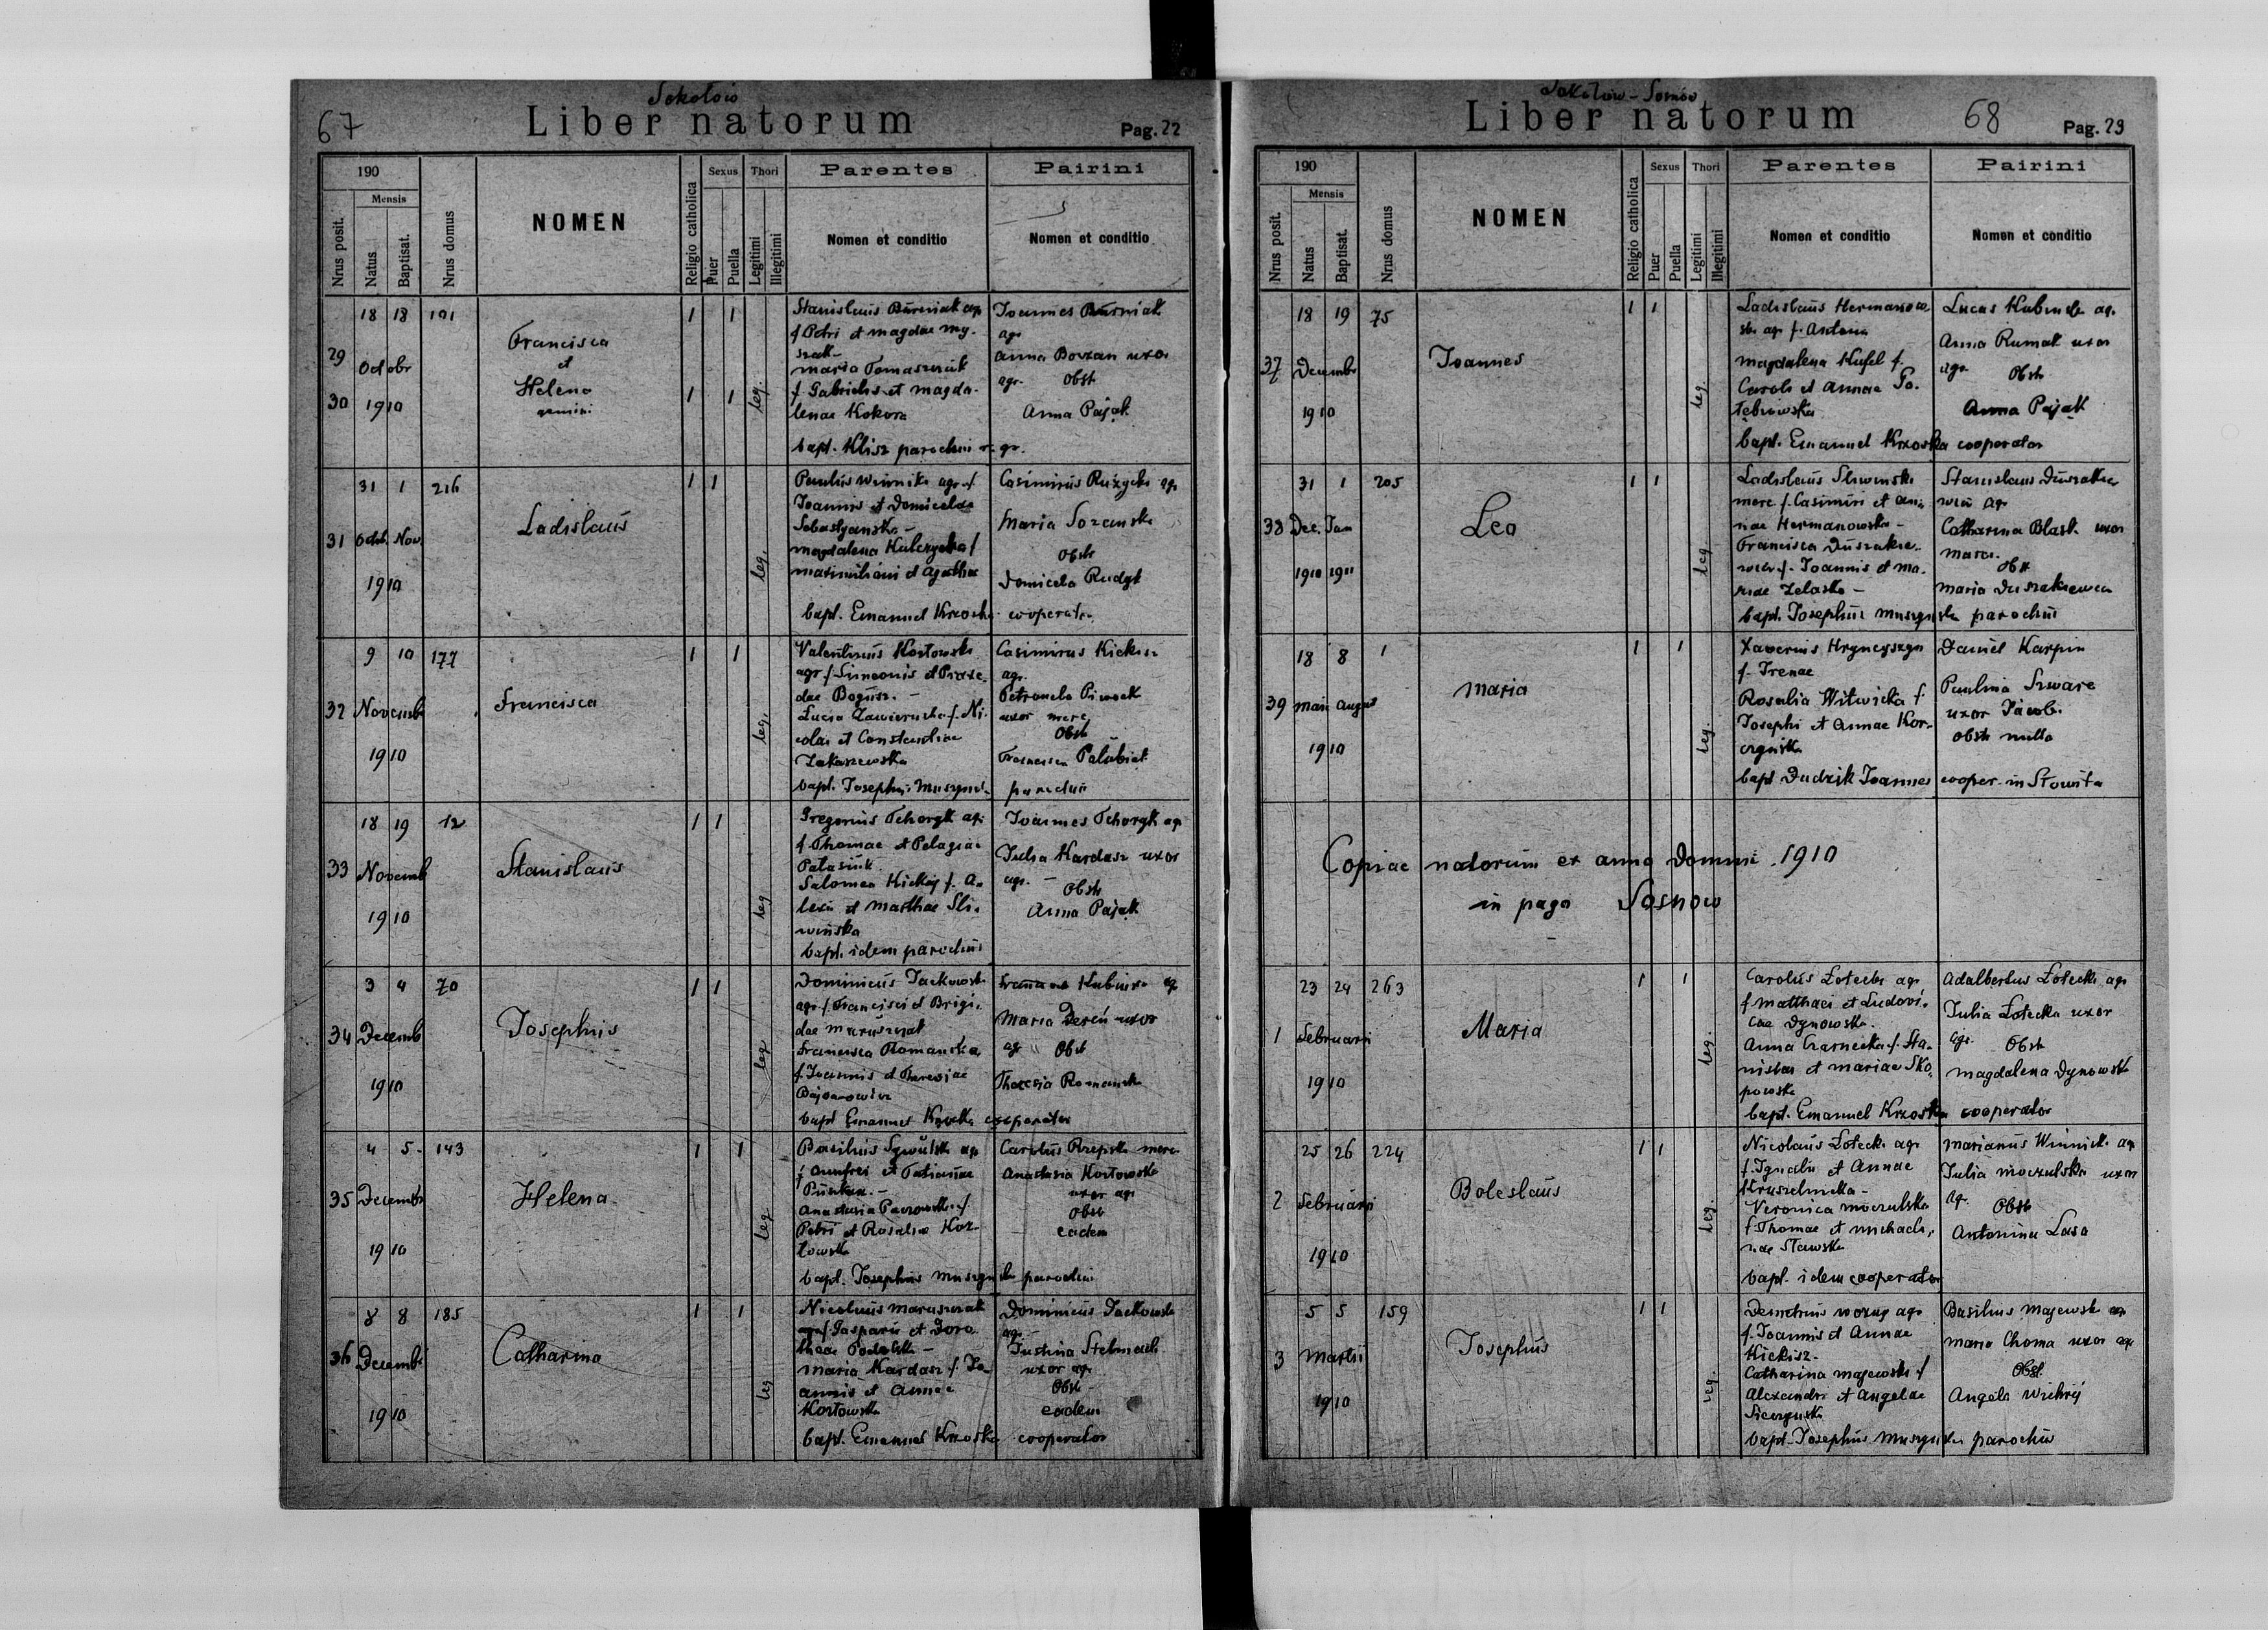 67
Sokołów
Liber natorum
Pag. 22
190
Mensis
Nrus posit.
Natus
Baptisat.
Nrus domus
NOMEN
Religio catholica
Sexus
Puer
Puella
Thori
Legitimi
Illegitimi
Parentes
Nomen et conditio
Pairini
Nomen et conditio
29
30
18 18 191
Octobr
1910
Francisca
et
Helena
gemini
1 1
1 1
leg.
Stanislaus Burniak agr
f. Petri et Magdae My-
szak
Maria Tomaszczuk
f. Gabrielis et Magda-
lenae Kokora
bapt. Klisz parochus r. gr.
Joannes Burniak
agr
Anna Bovzan uxor
agr. Obst
Anna Pająk
31
31 1 216
Octob. Nov.
1910
Ladislaus
1 1
leg.
Paulus Winnik agr. f.
Joannis et Domicelae
Sebastyanska
Magdalena Kulczycka f
Maximiliani et Agathae
bapt. Emanuel Krzoska cooperator
Casimirus Rużycki agr
Maria Sozanska
Obst
Domicela Rudyk
32
9 10 177
Novemb
1910
Francisca
1 1
leg.
Valentinus Kostowski
agr. f. Simeonis et Praxe-
dae Bogusz.
Lucia Zawierucha f. Ni-
colai et Constantiae
Zakaszewska
bapt. Josephus Muszyns. parochus
Casimirus Kickisz
agr.
Petronela Piwock
uxor merc.
Obst
Francisca Palubiak
33
18 19 12
Novemb
1910
Stanislaus
1 1
leg
Gregorius Tchoryk agr
f. Thomae et Pelagiae
Palasiuk
Salomea Kickej f. A-
lexii et Marthae Sli-
wińska
bapt. idem parochus
Joannes Tchoryk agr
Julia Kardasz uxor
agr.
Obst
Anna Pająk
34
3 4 70
Decemb
1910
Josephus
1 1
leg
Dominicus Jackowski
agr. f. Francisci et Brigi-
dae Maruszczak
Francisca Romanska
f. Joannis et Theresiae
Bajorowicz
bapt Emanuel Krzoska cooperator
Kubiska agr
Maria Dereń uxor
agr Obst
Theresia Romanska
35
4 5 143
Decembr
1910
Helena
1 1
leg
Basilius Sywulski agr
f. Onufrei et Tatianae
Anastasia Paczowska f.
Petri et Rosaliae Koz-
lowska
bapt. Josephus Muszynski parochus
Carolus Rzepski merc
Anastasia Kostowska
uxor agr
Obst
eadem
36
8 8 185
Decembr
1910
Catharina
1 1
leg
Nicolaus Maruszczak
agr f. Gasparis et Doro-
theae Podolska
Maria Kardasz f. Jo-
annis et Annae
Kostowska
bapt. Emanuel Krzoska cooperator
Dominicus Jackowski
agr.
Justina Stelmach
uxor agr.
Obst
eadem
Sokołów - Sosnów
Liber natorum
68
Pag. 23
190
Mensis
Nrus posit.
Natus
Baptisat.
Nrus domus
NOMEN
Religio catholica
Sexus
Puer
Puella
Thori
Legitimi
Illegitimi
Parentes
Nomen et conditio
Pairini
Nomen et conditio
37
18 19 75
Decembr
1910
Joannes
1 1
leg
Ladislaus Hermanow
ski agr f. Antona
Magdalena Kufel f.
Caroli et Annae Go-
łębiowska
bapt. Emanuel Krzoska cooperator
Lucas Kubiuda agr.
Anna Rumak uxor
agr. Obst
Anna Pająk
38
31 1 205
Dec. Jan
1910 1911
Leo
1 1
leg.
Ladislaus Sliwinski
merc f. Casimiri et An-
nae Hermanowska
Francisca Duszakie-
wicz f. Joannis et Ma-
riae Zelasko
bapt. Josephus Muszynski parochus
Stanislaus Duszakie
wicz agr
Catharina Blask. uxor
merc.
Obst
Maria Duszakiewicz
39
18 8 1
Maii August
1910
Maria
1 1
leg.
Xaverius Hryncyszyn
f. Irenae
Rosalia Witwicka f.
Josephi et Annae Kor-
czyńska
bapt Dudzik Joannes cooper. in Słowita
Daniel Karpin
Paulina Szwarc
uxor Jacobi
Obst nulla
Copiae natorum ex anno Domini 1910
in pago Sosnow
1
23 24 263
Februarii
1910
Maria
1 1
leg.
Carolus Łotecki agr
f. Matthaei et Ludovi-
cae Dynowska.
Anna Czarnecka f. Sta-
nislai et Mariae Sko-
powska
bapt. Emanuel Krzoska cooperator
Adalbertus Łotecki agr
Julia Łotecka uxor
agr. Obst
Magdalena Dynowska
2
25 26 224
Februarii
1910
Boleslaus
1 1
leg.
Nicolaus Łotecki agr
f. Ignatii et Annae
Kruszelnicka
Veronica Moczulska
f. Thomae et Michaeli-
nae Stawska
bapt. idem cooperator
Marianus Winnick agr
Julia Moczulska uxor
agr. Obst
Antonina Lasa
3
5 5 159
Martii
1910
Josephus
1 1
leg.
Demetrius Wozny agr
f. Joannis et Annae
Kickisz
Catharina Majewska f
Alexandri et Angelae
Sieczynska
bapt. Josephus Muszynski parochus
Basilius Majewski agr
Maria Choma uxor agr
Obst.
Angela Wichrij